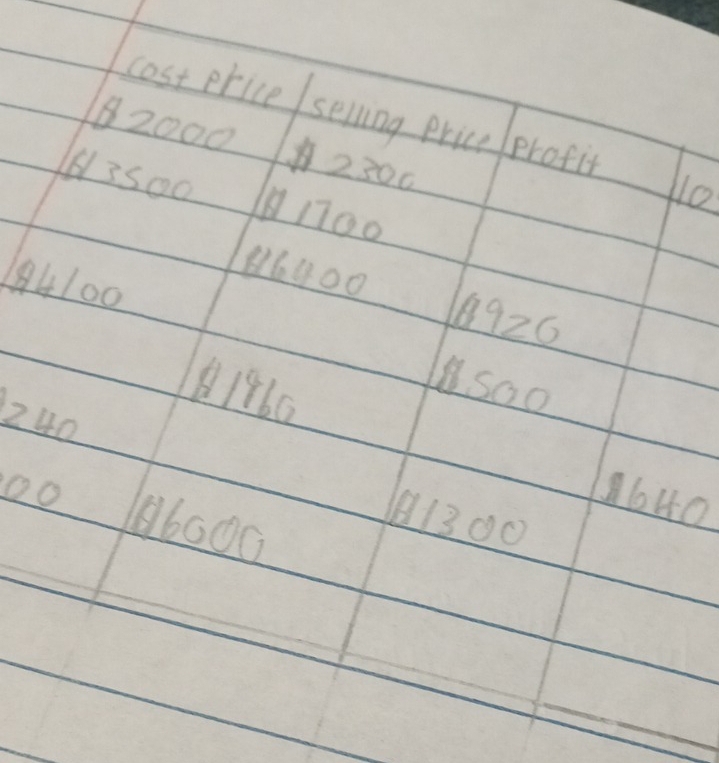 cost price selling price profit lo
$2000 $2300
$3500 $1700
$6400 $920
$4100 $500
$1960 $640
240 $1300
00 $6000